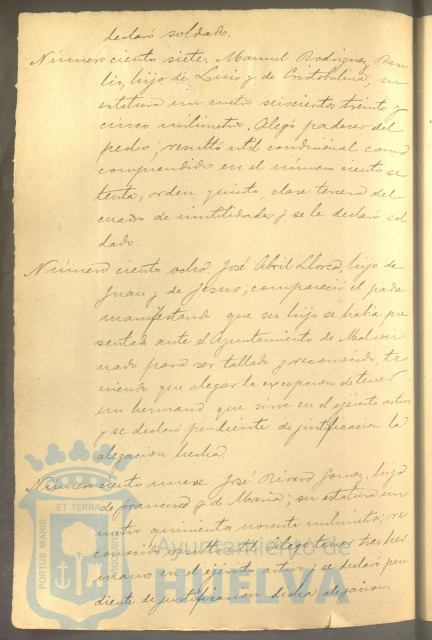 declaró soldado.
Número ciento siete. Manuel Rodriguez
hijo de Luis y de Cristobalina, su
estatura un metro seiscientos treinta y
cinco milimetros. Alegó padecer del
pecho; resultó util condicional como
comprendido en el número ciento se
tenta, orden quinto, clase tercera del
cuadro de inutilidades y se le declaró sol
dado.
Número ciento ocho. José Abril Llorca, hijo de
Juan y de Jesus; compareció el padre
manifestando que su hijo se habia pre
sentado ante el Ayuntamiento de
para ser tallado y reconocido te
niendo que alegar la excepcion de tener
un hermano que sirve en el ejército activo
y se declaró pendiente de justificacion la
alegacion hecha.
Número ciento nueve. José Rivero Gomez, hijo
de Francisco y de Maria; su estatura un
metro quinientos noventa milimetros; re
conocido resultó util. Alegó tener her
mano en el ejército activo y se declaró pen
diente de justificacion dicha alegacion.
PORTUS MARIS
ET TERRAE
CUSTODIA
Ayuntamiento de
HUELVA